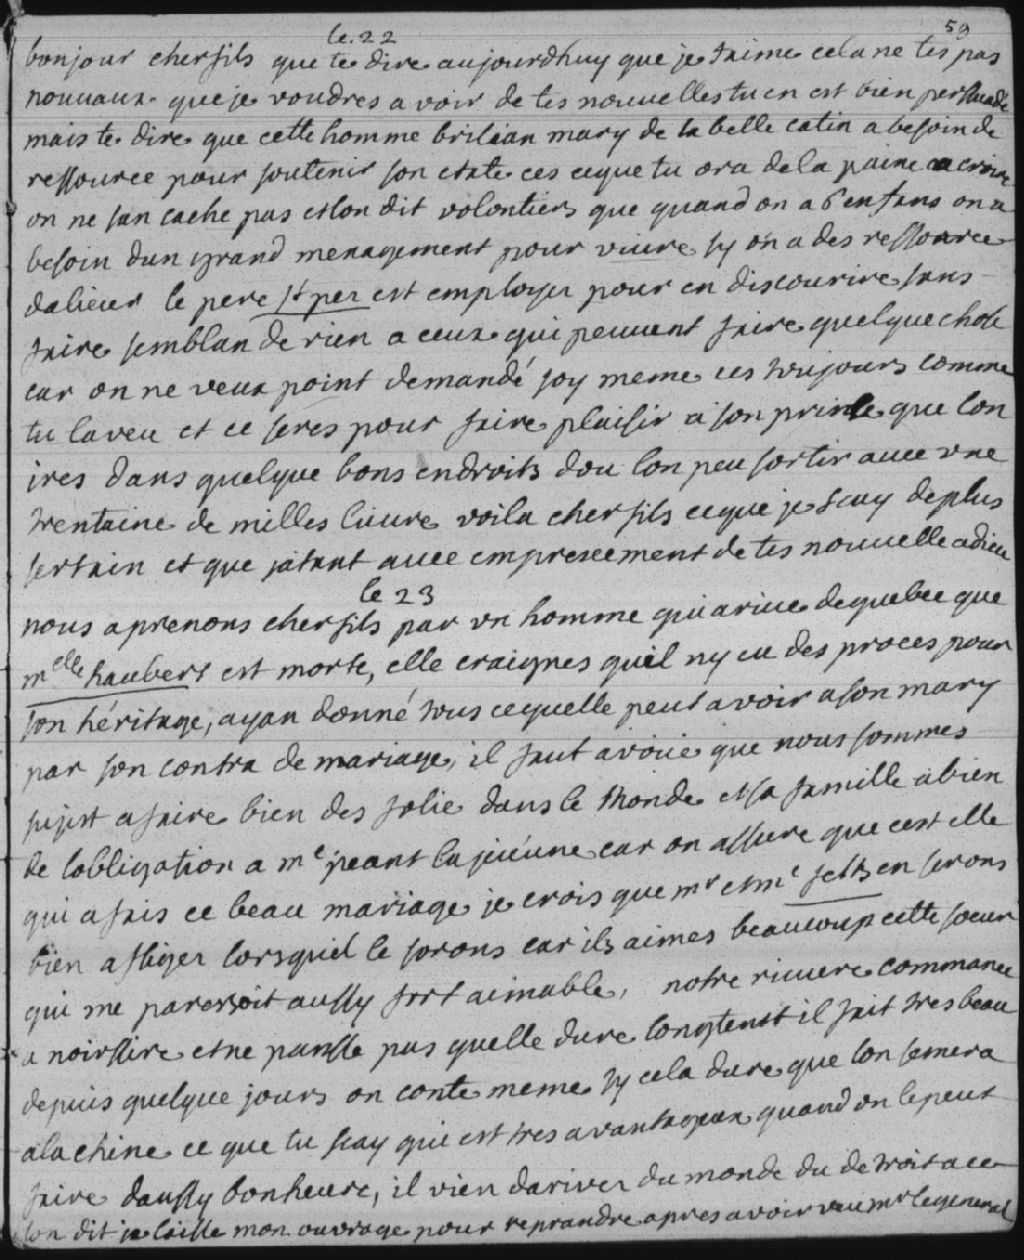 59
le 22
bonjour cher fils que te dire aujourdhuy que je taime cela ne tes pas
nouvaux que je voudres avoir de tes nouvelles tu en est bien persuadé
mais te dire que cette homme brilian mary de la belle catin a besoin de
ressource pour soutenir son etate ces ceque tu ora de la paine a croire
on ne san cache pas et lon dit volontiers que quand on a 6 enfans on a
besoin dun grand menagement pour vivre sy on a des ressource
dalieur le pere st per est employer pour en discourire sans
faire semblan de rien a ceux qui peuvent faire quelque chose
car on ne veux point demandé soy meme ces toujours comme
tu la veu et ce seres pour faire plaisir a son prince que lon
ires dans quelque bons endroits dou lon peu sortir avec vne
trentaine de milles livre voila cher fils ceque je scay de plus
sertain et que jatant avec empreseement de tes nouvelle adieu
le 23
nous aprenons cher fils par vn homme qui arive de quebec que
melle haubert est morte, elle craignes quil ny eu des proces pour
son héritage, ayan donné tous cequelle peut avoir a son mary
par son contra de mariage, il faut avoüe que nous sommes
sujet a faire bien des folie dans le monde et sa famille a bien
de lobligation a me peant la jeüune car on assure que cest elle
qui a fais ce beau mariage je crois que mr et me en serons
bien afliger lorsquil le sorons car ils aimes beaucoup cette soeur
qui me paressoit aussy fort aimable, notre riviere commance
a noirssire et ne pansse pas quelle dure longtenst il fait tres beau
depuis quelque jours on conte meme sy cela dure que lon semera
a la chine ce que tu scay qui est tres avantageux quand on le peut
faire daussy bonheure, il vien dariver du monde du detroit a ce
lon dit je laisse mon ouvrage pour reprandre apres avoir veu mr le general